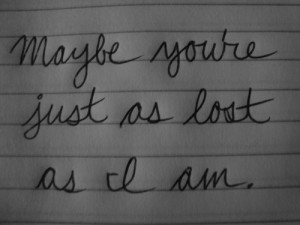 Maybe you're
just as lost
as I am.